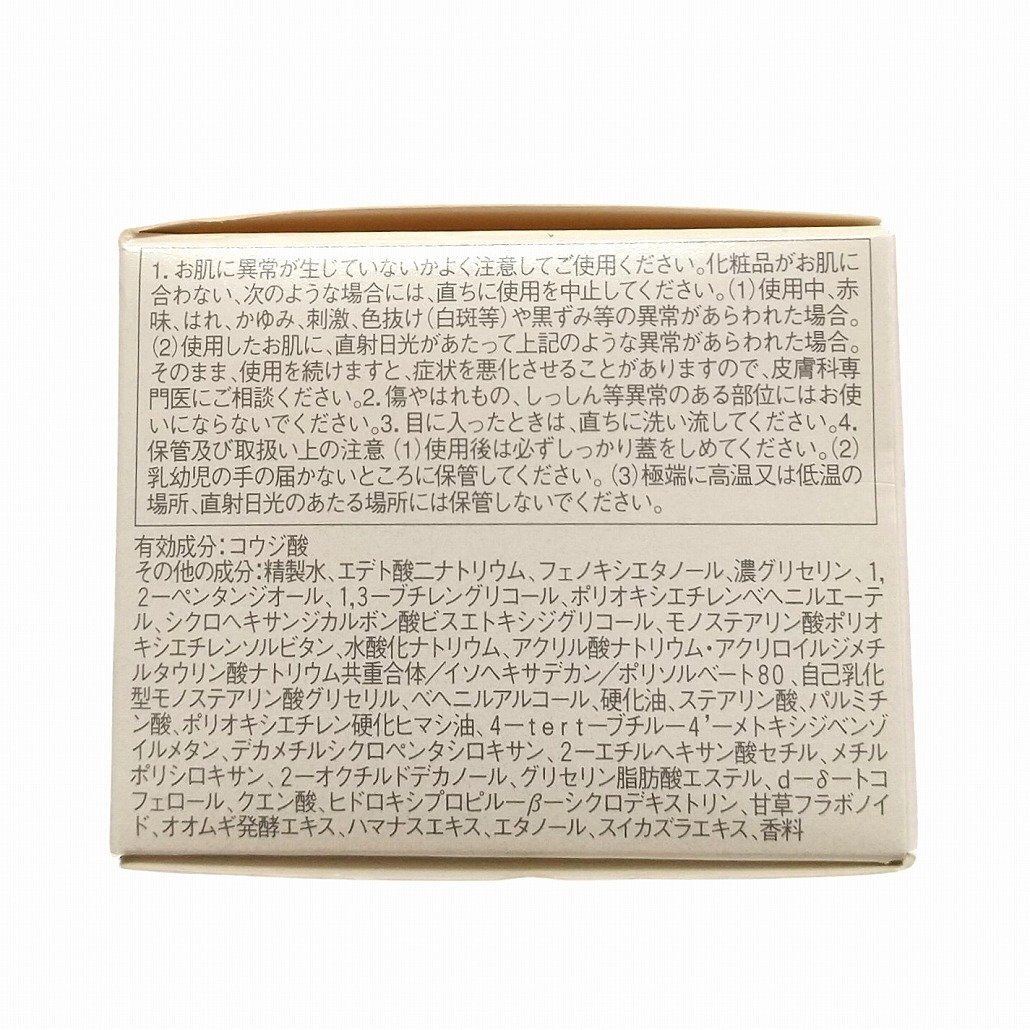 1. お肌に異常が生じていないかよく注意してご使用ください。化粧品がお肌に
合わない、次のような場合には、直ちに使用を中止してください。(1)使用中、赤
味、はれ、かゆみ、刺激、色抜け(白斑等)や黒ずみ等の異常があらわれた場合。
(2)使用したお肌に、直射日光があたって上記のような異常があらわれた場合。
そのまま、使用を続けますと、症状を悪化させることがありますので、皮膚科専
門医にご相談ください。2. 傷やはれもの、しっしん等異常のある部位にはお使
いにならないでください。3. 目に入ったときは、直ちに洗い流してください。4.
保管及び取扱い上の注意 (1)使用後は必ずしっかり蓋をしめてください。(2)
乳幼児の手の届かないところに保管してください。 (3)極端に高温又は低温の
場所、直射日光のあたる場所には保管しないでください。
有効成分:コウジ酸
その他の成分:精製水、エデト酸二ナトリウム、フェノキシエタノール、濃グリセリン、1,
2ーペンタンジオール、1,3ーブチレングリコール、ポリオキシエチレンベヘニルエーテ
ル、シクロヘキサンジカルボン酸ビスエトキシジグリコール、モノステアリン酸ポリオ
キシエチレンソルビタン、水酸化ナトリウム、アクリル酸ナトリウム・アクリロイルジメチ
ルタウリン酸ナトリウム共重合体/イソヘキサデカン/ポリソルベート80、自己乳化
型モノステアリン酸グリセリル、ベヘニルアルコール、硬化油、ステアリン酸、パルミチ
ン酸、ポリオキシエチレン硬化ヒマシ油、4ーtertーブチルー4'ーメトキシジベンゾ
イルメタン、デカメチルシクロペンタシロキサン、2ーエチルヘキサン酸セチル、メチル
ポリシロキサン、2ーオクチルドデカノール、グリセリン脂肪酸エステル、dーδートコ
フェロール、クエン酸、ヒドロキシプロピルーβーシクロデキストリン、甘草フラボノイ
ド、オオムギ発酵エキス、ハマナスエキス、エタノール、スイカズラエキス、香料